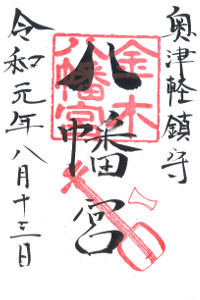 奥津軽鎮守
八幡宮
令和元年八月十三日
金木
八幡宮